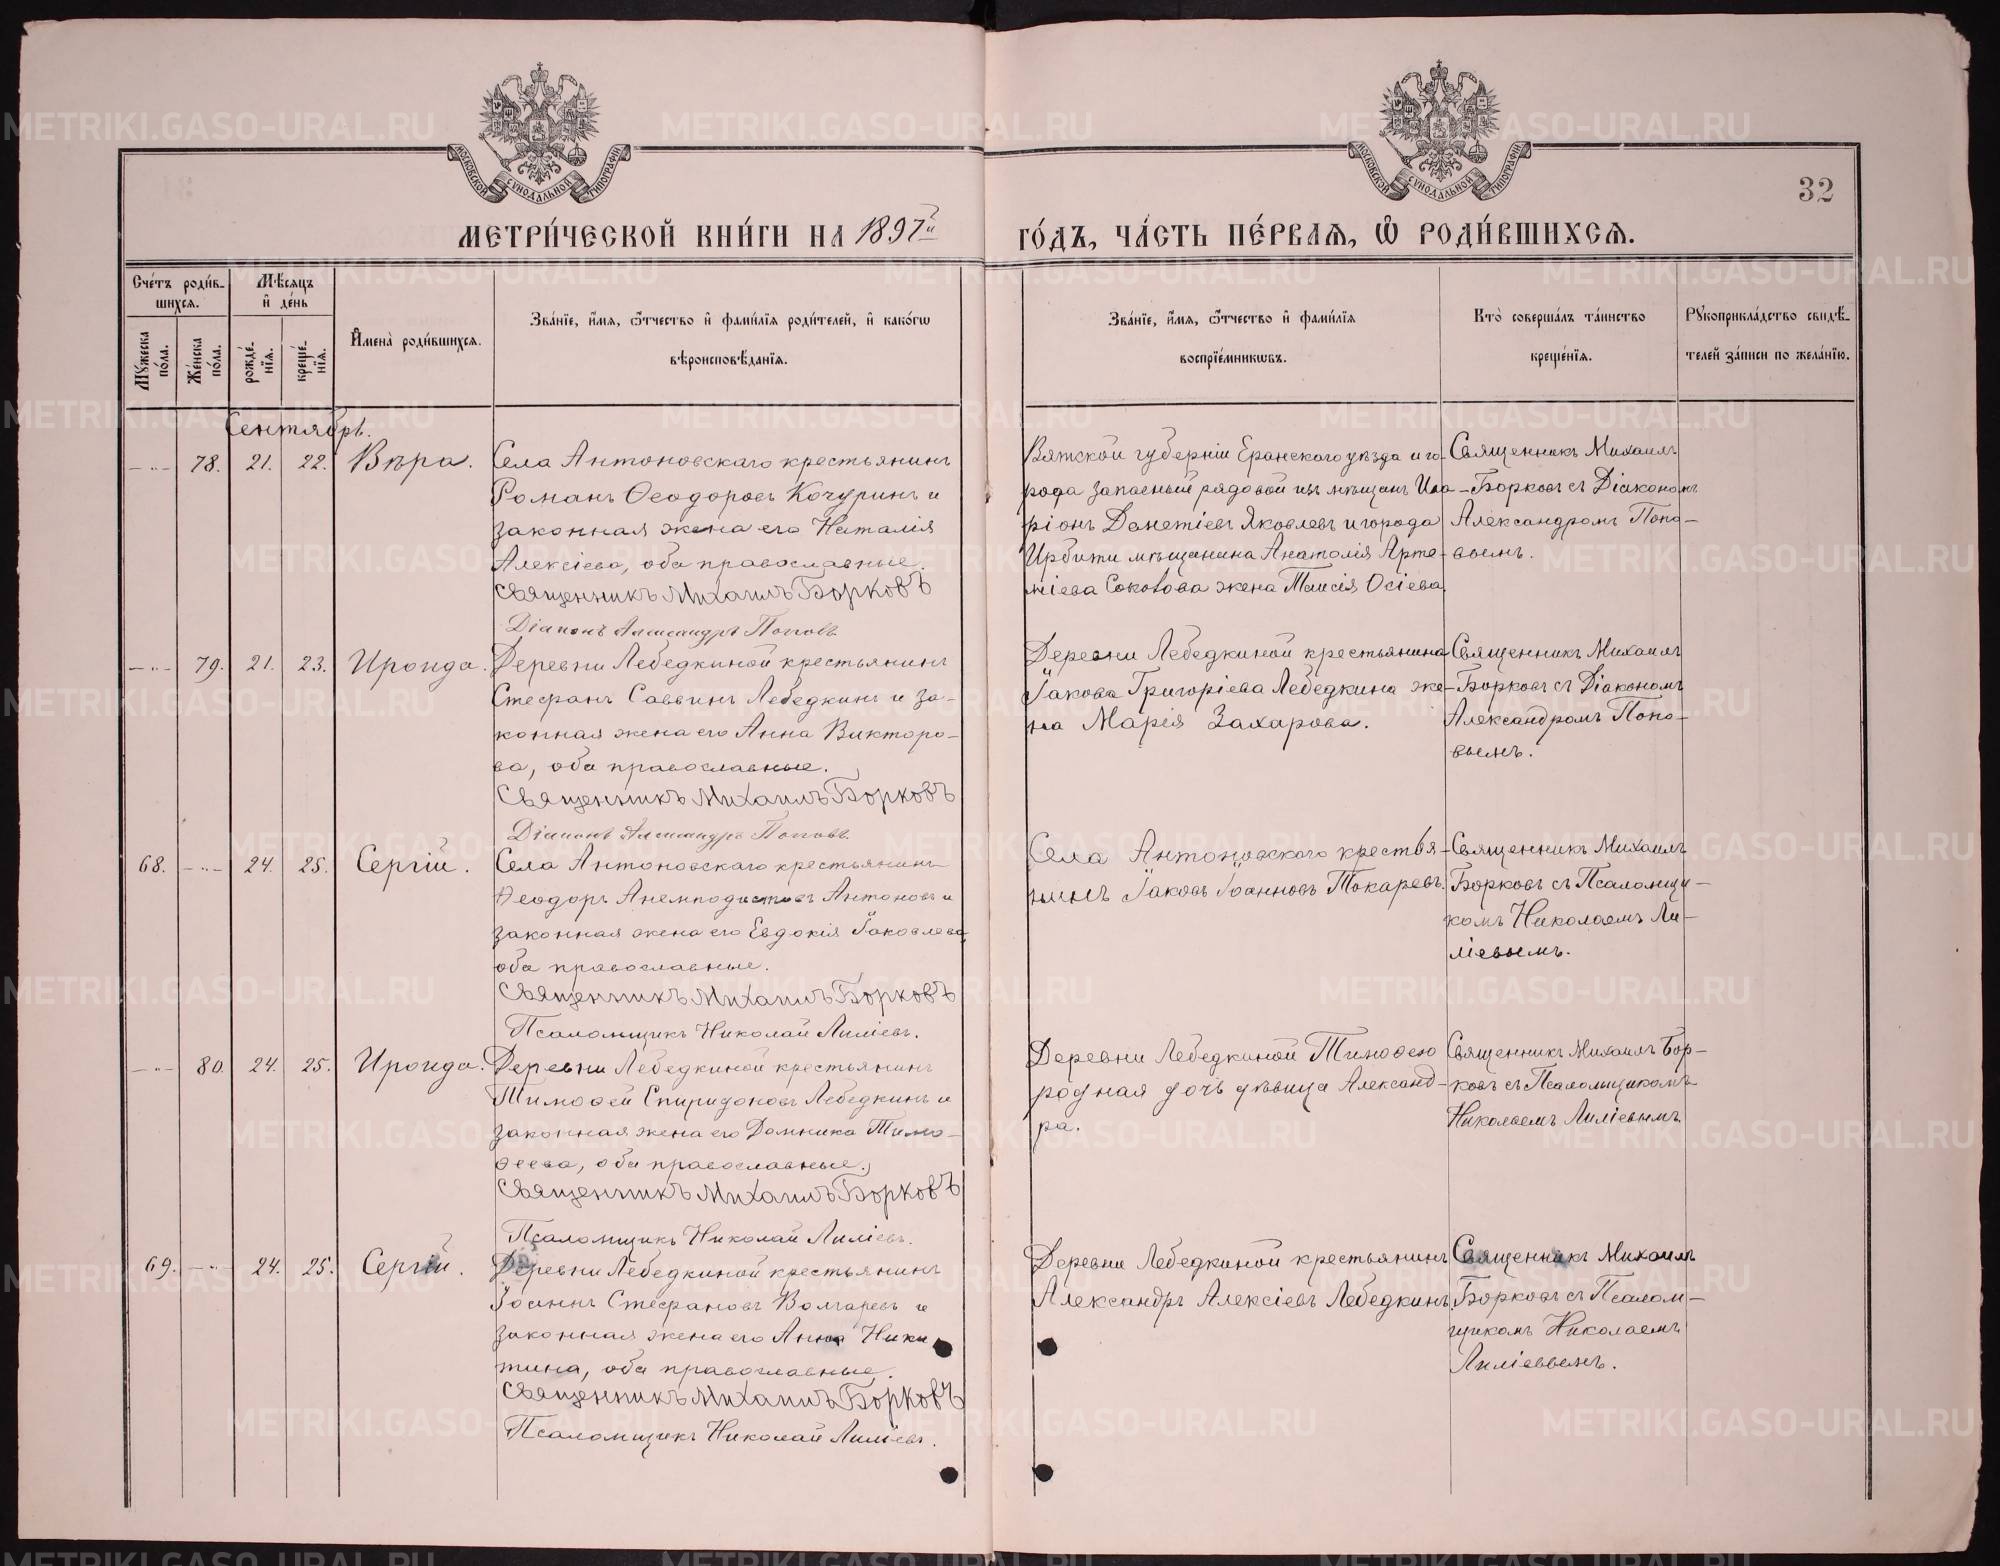 МОСКОВСКОЙ СѴНОДАЛЬНОЙ ТИПОГРАФІИ
МОСКОВСКОЙ СѴНОДАЛЬНОЙ ТИПОГРАФІИ
32
МЕТРИ́ЧЕСКОЙ КНИ́ГИ НА 1897й
ГО́ДЪ, ЧА́СТЬ ПЕ́РВАЯ, Ѽ РОДИ́ВШИХСЯ.
Сче́тъ роди́в-
шихся.
Мѣ́сяцъ
и҆ де́нь
Му́жеска
по́ла.
Же́нска
по́ла.
рожде́-
нїя.
креще́-
нїя.
И҆мена̀ роди́вшихся.
Зва́нїе, и҆́мя, ѻ҆́тчество и҆ фами́лїя роди́телей, и҆ како́гѡ
вѣроисповѣ́данїя.
Зва́нїе, и҆́мя, ѻ҆́тчество и҆ фами́лїя
воспрїе́мникѡвъ.
Кто̀ соверша́лъ та́инство
креще́нїя.
Рукоприкла́дство свидѣ́-
телей за́писи по жела́нїю.
Сентябрь.
—"— 78. 21. 22. Вѣра.
Села Антоновскаго крестьянинъ
Романъ Ѳеодоровъ Кочуринъ и
законная жена его Наталія
Алексіева, оба православные.
Священникъ Михаилъ Борковъ
Діаконъ Александръ Поповъ
Вятской губерніи Еранскаго уѣзда и го-
рода запасный рядовой изъ мѣщанъ Ила-
ріонъ Дометіевъ Яковлевъ и города
Ирбити мѣщанина Анатолія Арте-
міева Соколова жена Таисія Осіева.
Священникъ Михаилъ
Борковъ съ Діакономъ
Александромъ Попо-
вымъ.
—"— 79. 21. 23. Ироида.
Деревни Лебедкиной крестьянинъ
Стефанъ Саввинъ Лебедкинъ и за-
конная жена его Анна Викторо-
ва, оба православные.
Священникъ Михаилъ Борковъ
Діаконъ Александръ Поповъ
Деревни Лебедкиной крестьянина
Іакова Григоріева Лебедкина же-
на Марія Захарова.
Священникъ Михаилъ
Борковъ съ Діакономъ
Александромъ Попо-
вымъ.
68. —"— 24. 25. Сергій.
Села Антоновскаго крестьянинъ
Ѳеодоръ Анемподистовъ Антоновъ и
законная жена его Евдокія Іаковлева,
оба православные.
Священникъ Михаилъ Борковъ
Псаломщикъ Николай Лиліевъ.
Села Антоновскаго крестья-
нинъ Іаковъ Іоанновъ Токаревъ.
Священникъ Михаилъ
Борковъ съ Псаломщи-
комъ Николаемъ Ли-
ліевымъ.
—"— 80. 24. 25. Ироида.
Деревни Лебедкиной крестьянинъ
Тимоѳей Спиридоновъ Лебедкинъ и
законная жена его Домника Тимо-
ѳеева, оба православные.
Священникъ Михаилъ Борковъ
Псаломщикъ Николай Лиліевъ.
Деревни Лебедкиной Тимоѳею
родная дочь дѣвица Александ-
ра.
Священникъ Михаилъ Бор-
ковъ съ Псаломщикомъ
Николаемъ Лиліевымъ.
69. —"— 24. 25. Сергій.
Деревни Лебедкиной крестьянинъ
Іоаннъ Стефановъ Волгаревъ и
законная жена его Анна Ники-
тина, оба православные.
Священникъ Михаилъ Борковъ
Псаломщикъ Николай Лиліевъ.
Деревни Лебедкиной крестьянинъ
Александръ Алексіевъ Лебедкинъ.
Священникъ Михаилъ
Борковъ съ Псалом-
щикомъ Николаемъ
Лиліевымъ.
METRIKI.GASO-URAL.RU